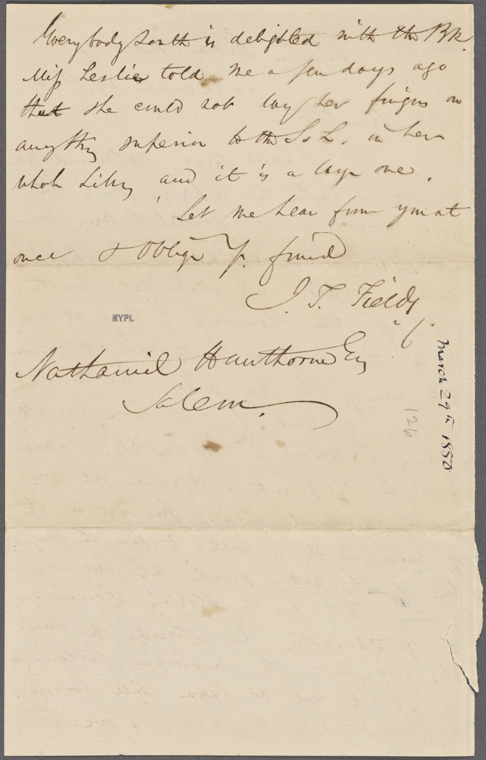 Everybody South is delighted with the Bk.
Miss Leslie told me a few days ago
that she could not lay her finger on
anything superior to the S. L. in her
whole Liby and it is a large one.
Let me hear from you at
once & oblige yr. friend
J. T. Fields
Nathaniel Hawthorne Esq
Salem.
NYPL
March 29th 1850
126